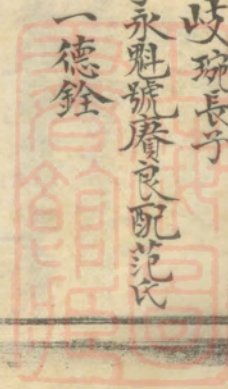 岐琬長子
永魁號賡良配范氏
一德銓